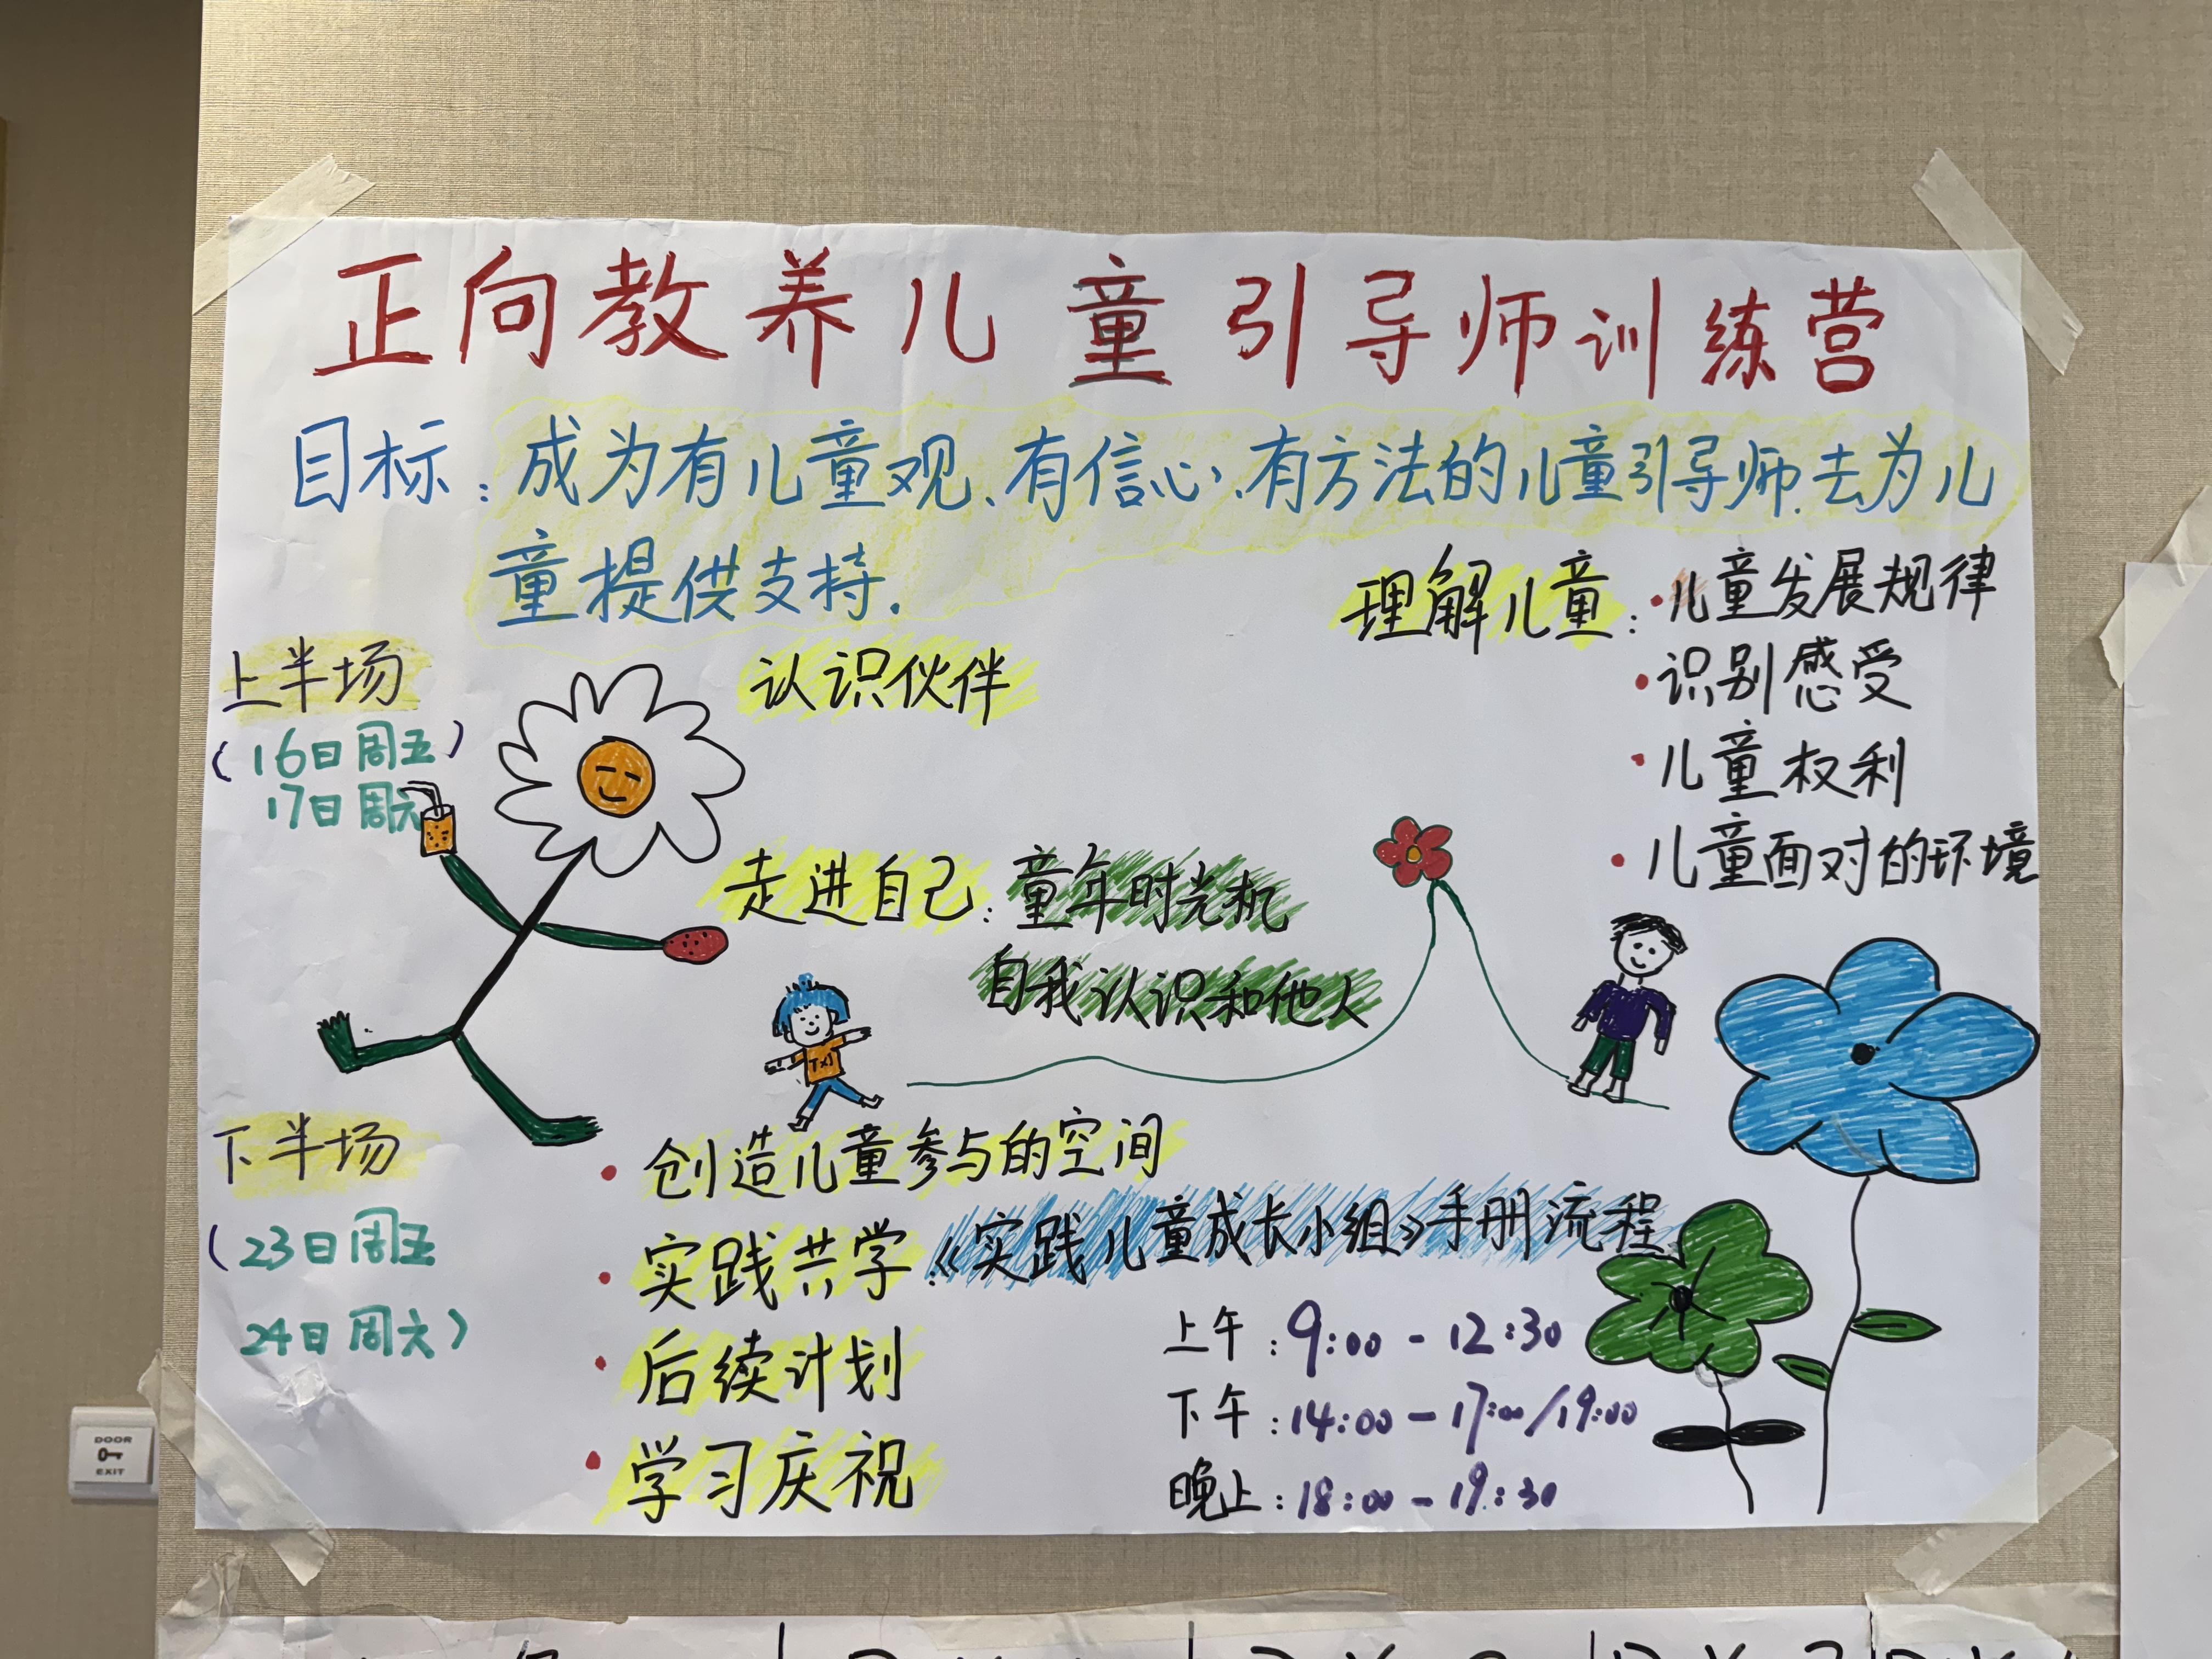 正向教养儿童引导师训练营
目标：成为有儿童观、有信心、有方法的儿童引导师.去为儿
童提供支持.
上半场
(16日周五)
17日周六
认识伙伴
走进自己：童年时光机
自我认识和他人
理解儿童：·儿童发展规律
·识别感受
·儿童权利
·儿童面对的环境
TXJ
下半场
(23日周五
24日周六)
·创造儿童参与的空间
·实践共学：《实践儿童成长小组》手册流程
·后续计划
·学习庆祝
上午：9:00-12:30
下午：14:00-17:00/19:00
晚上：18:00-19:30
DOOR
EXIT